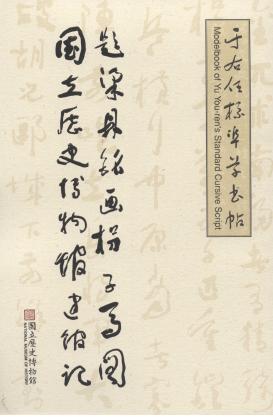 于右任標準草書帖
Modelbook of Yu You-ren's Standard Cursive Script
題梁鼎銘画拐子馬圖
國立歷史博物館建館記
國立歷史博物館
NATIONAL MUSEUM OF HISTORY